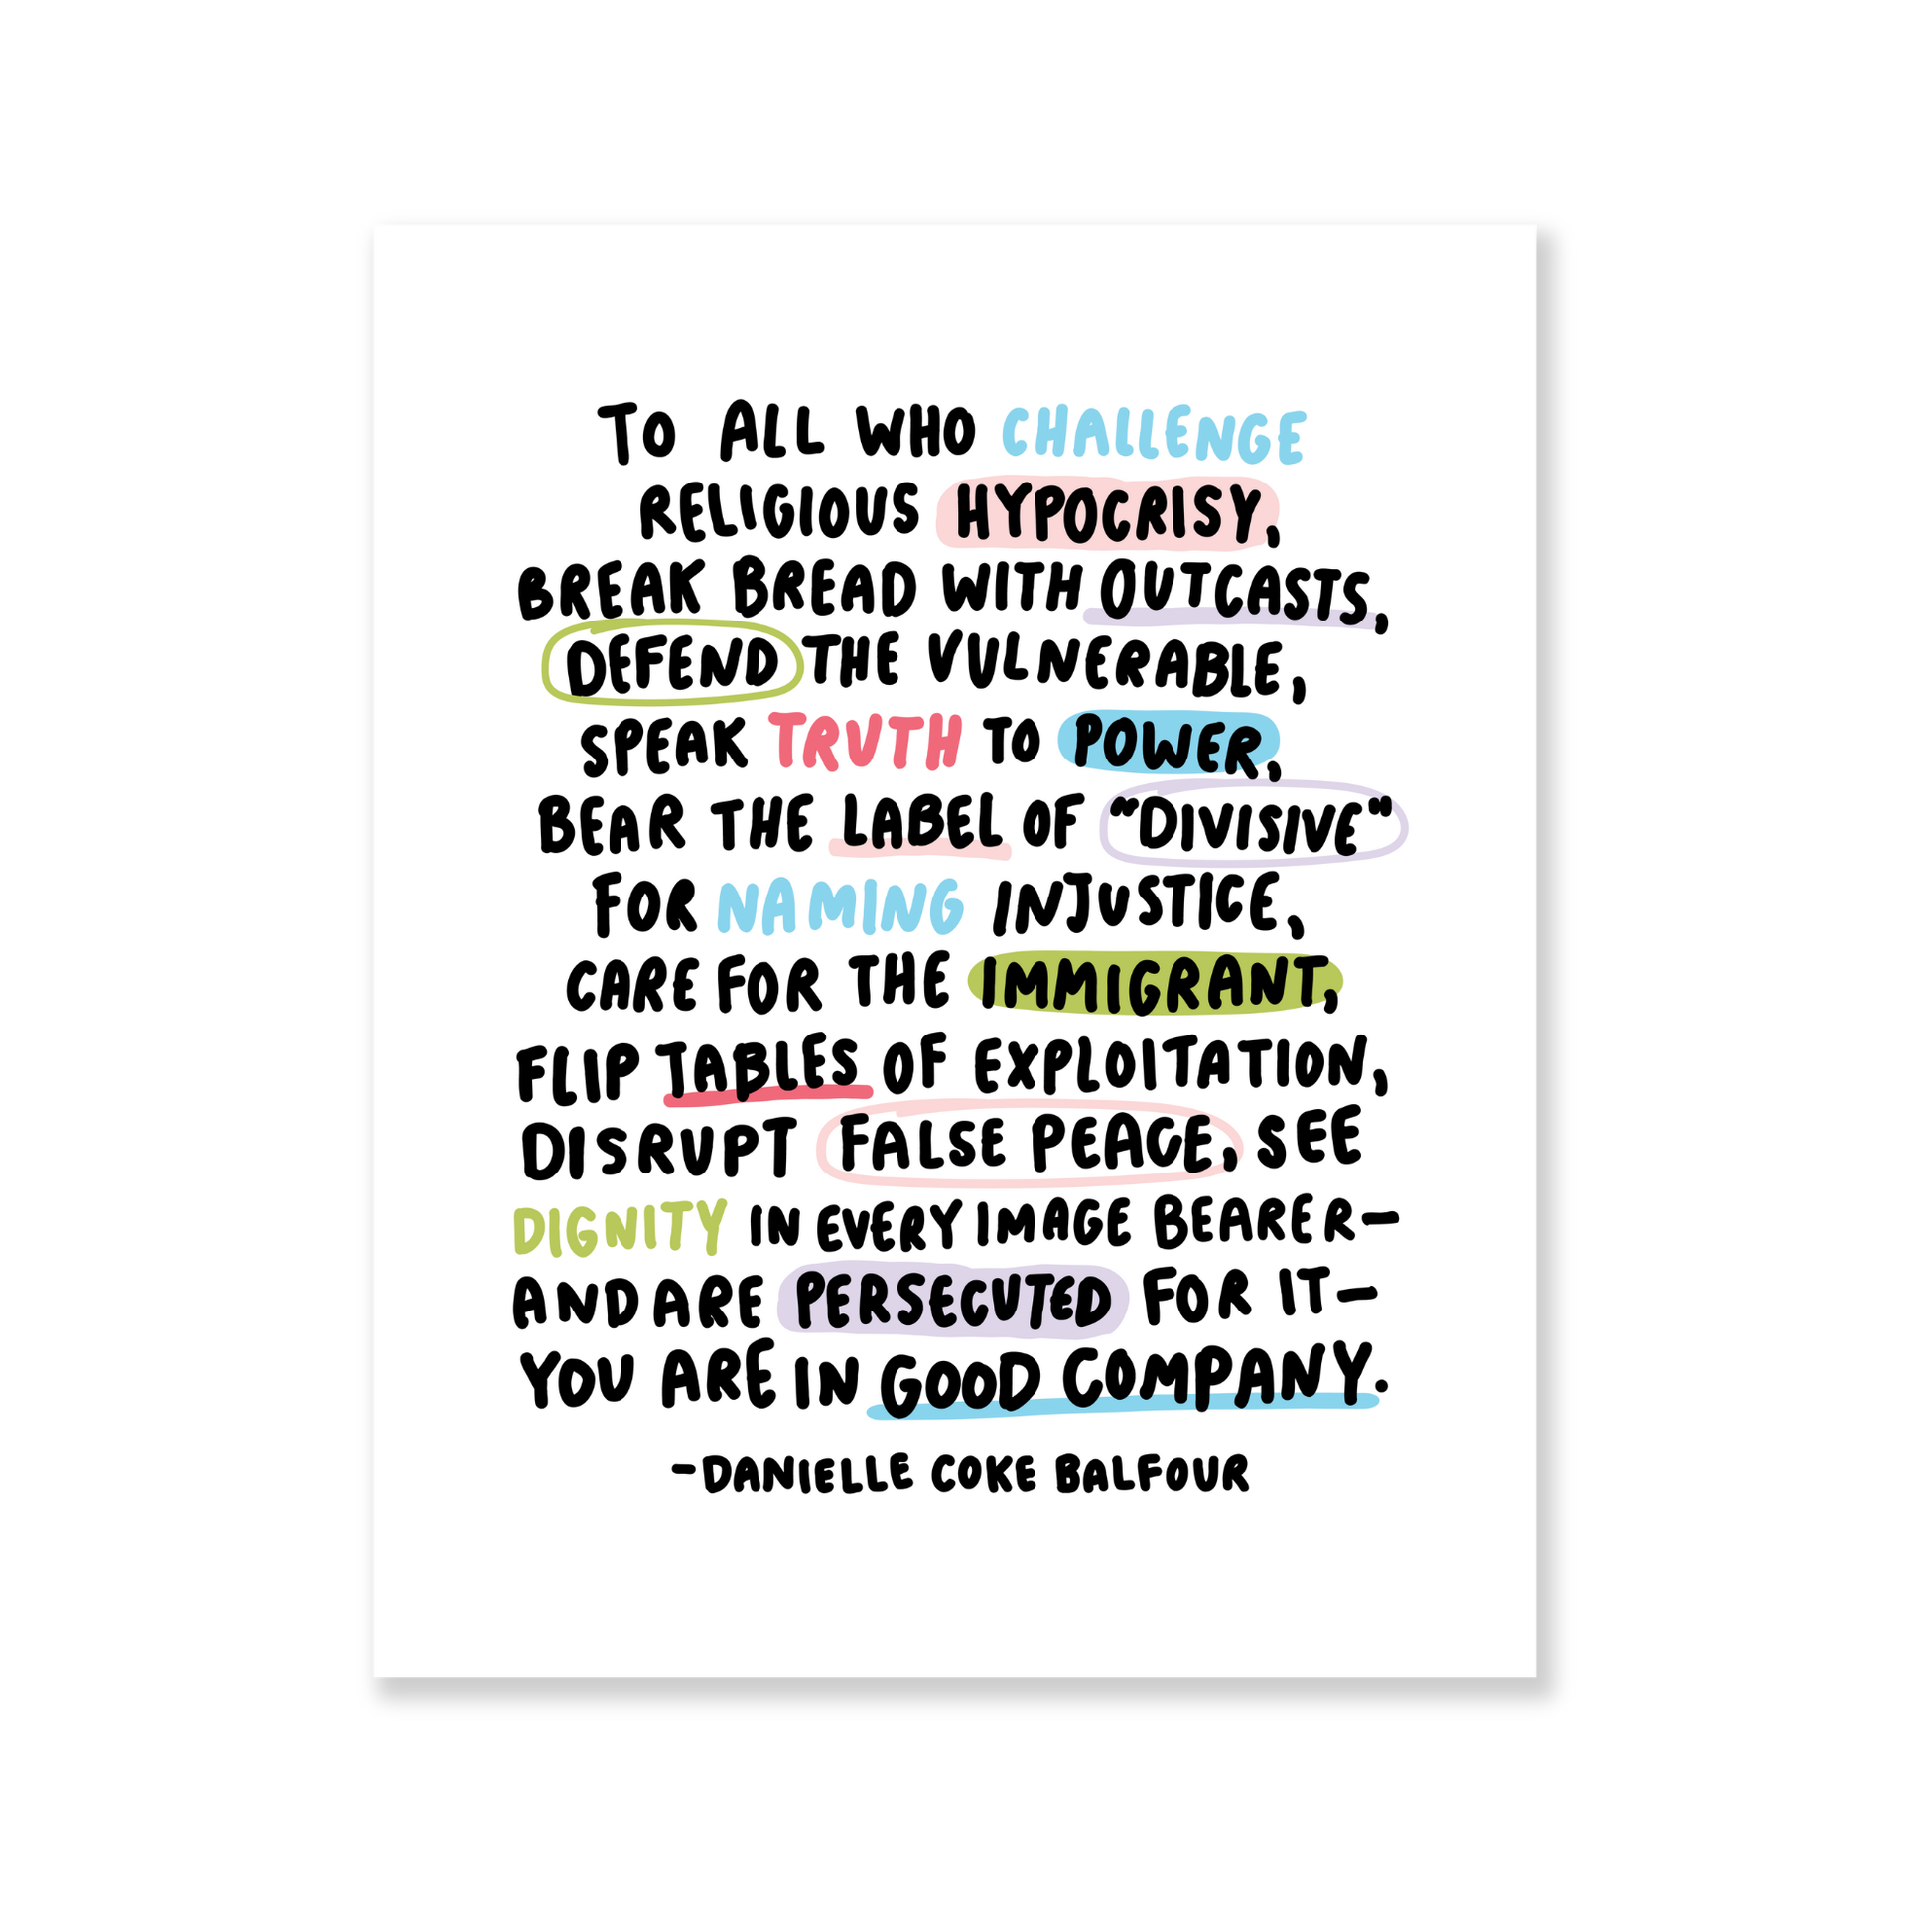 TO ALL WHO CHALLENGE
RELIGIOUS HYPOCRISY,
BREAK BREAD WITH OUTCASTS,
DEFEND THE VULNERABLE,
SPEAK TRUTH TO POWER,
BEAR THE LABEL OF "DIVISIVE"
FOR NAMING INJUSTICE,
CARE FOR THE IMMIGRANT,
FLIP TABLES OF EXPLOITATION,
DISRUPT FALSE PEACE, SEE
DIGNITY IN EVERY IMAGE BEARER—
AND ARE PERSECUTED FOR IT—
YOU ARE IN GOOD COMPANY.
-DANIELLE COKE BALFOUR